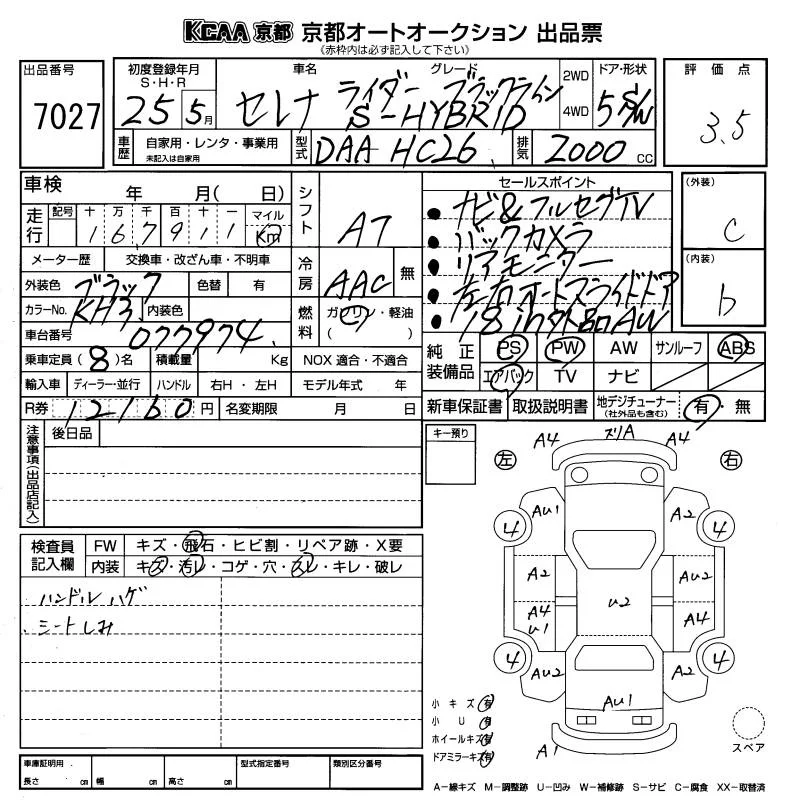 KCAA 京都 京都オートオークション 出品票
(赤枠内は必ず記入して下さい)
出品番号
7027
初度登録年月
S・H・R
25 5月
車名
セレナ
グレード
ライダー ブラックライン
S-HYBRID
2WD
4WD
ドア・形状
5 S/W
評価点
3.5
車歴
自家用・レンタ・事業用
未記入は自家用
型式
DAA HC26
排気
2000 cc
車検 年 月( 日)
走行
記号 十 万 千 百 十 一 マイル
1 6 7 9 1 1 Km
メーター歴 交換車・改ざん車・不明車
外装色 ブラック 色替 有
カラーNo. KH3 内装色
車台番号 077974
乗車定員(8)名 積載量 Kg
NOX 適合・不適合
輸入車 ディーラー・並行 ハンドル 右H・左H モデル年式 年
R券 12160円 名変期限 月 日
シフト
AT
冷房
AAC 無
燃料
ガソリン・軽油
( )
セールスポイント
● ナビ&フルセグTV
● バックカメラ
● リアモニター
● 左右オートスライドドア
● 18in外品AW
(外装)
C
(内装)
b
純正装備品
PS PW AW サンルーフ ABS
エアバック TV ナビ
新車保証書 取扱説明書 地デジチューナー
(社外品も含む)
有・無
注意事項(出品店記入)
後日品
キー預り
検査員記入欄
FW キズ・飛石・ヒビ割・リペア跡・X要
内装 キズ・汚レ・コゲ・穴・スレ・キレ・破レ
ハンドルハゲ
シートしみ
左
右
A4 ズリA A4
AU1 A2
4 4
A2 AU2
U2
A4 U1 A4
4 4
AU2 A2
AU1
A1
小キズ 有
小U 有
ホイールキズ 有
ドアミラーキズ 有
スペア
A-線キズ M-調整跡 U-凹み W-補修跡 S-サビ C-腐食 XX-取替済
車庫証明用
長さ cm 幅 cm 高さ cm
型式指定番号
類別区分番号